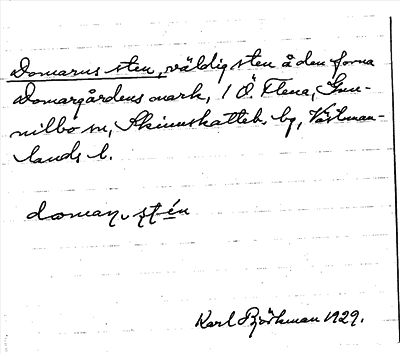 Domarns sten, väldig sten å den forna
Domargårdens mark, i Ö. Flena, Gun-
nilbo sn, Skinnskatteb. bg, Västman-
lands l.
doman stén
Karl Björkman 1929.